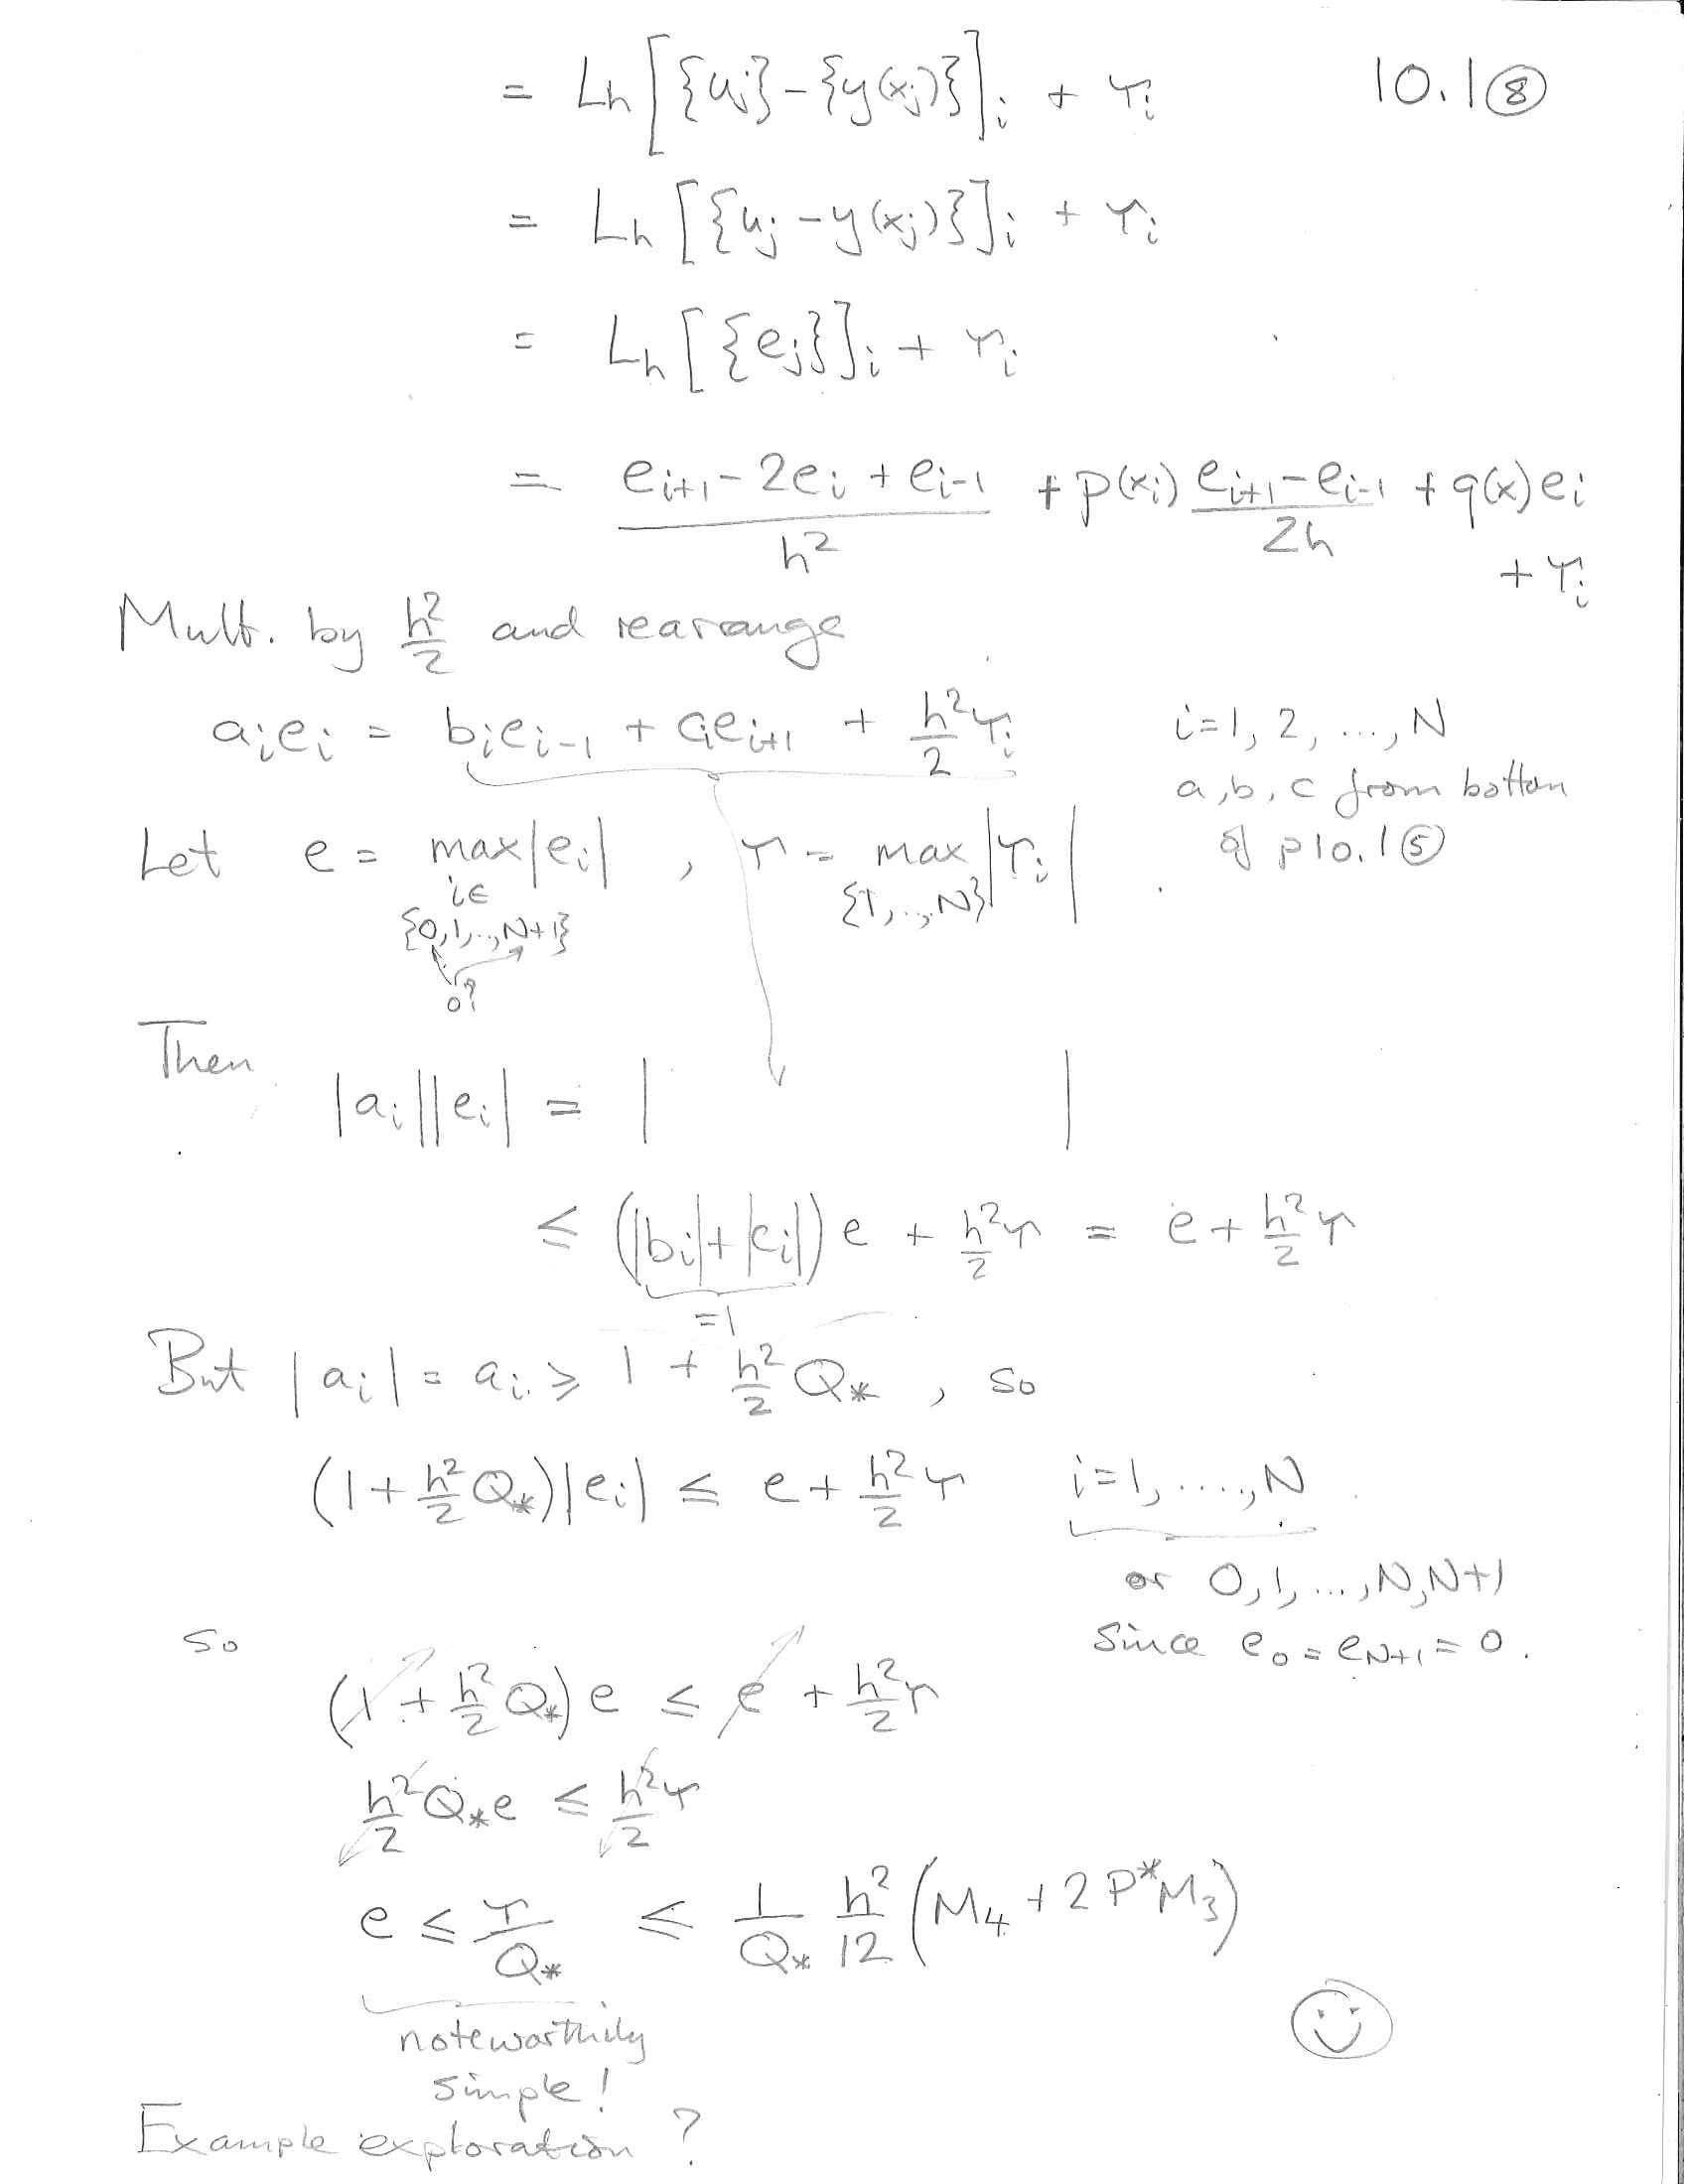 = Lh[{uj}-{y(xj)}]i + τi 10.1⑧
= Lh[{uj-y(xj)}]i + τi
= Lh[{ej}]i + τi
= (ei+1 - 2ei + ei-1)/h² + p(xi) (ei+1 - ei-1)/2h + q(x)ei
+ τi
Mult. by h²/2 and rearange
aiei = biei-1 + ciei+1 + h²/2 τi i=1, 2, ..., N
a, b, c from bottom
of p10.1⑤
Let e = max|ei| , τ = max|τi|
i∈ {1,..,N}
{0,1,..,N+1}
0?
Then
|ai||ei| = | |
≤ (|bi|+|ci|)e + h²/2 τ = e + h²/2 τ
=1
But |ai| = ai ≥ 1 + h²/2 Q* , so
(1+h²/2 Q*)|ei| ≤ e + h²/2 τ i=1,....,N
or 0,1,...,N,N+1
since e0=eN+1=0.
so
(1+h²/2 Q*)e ≤ e + h²/2 τ
h²/2 Q*e ≤ h²/2 τ
e ≤ τ/Q* ≤ 1/Q* h²/12 (M4+2P*M3)
noteworthily
simple!
Example exploration?